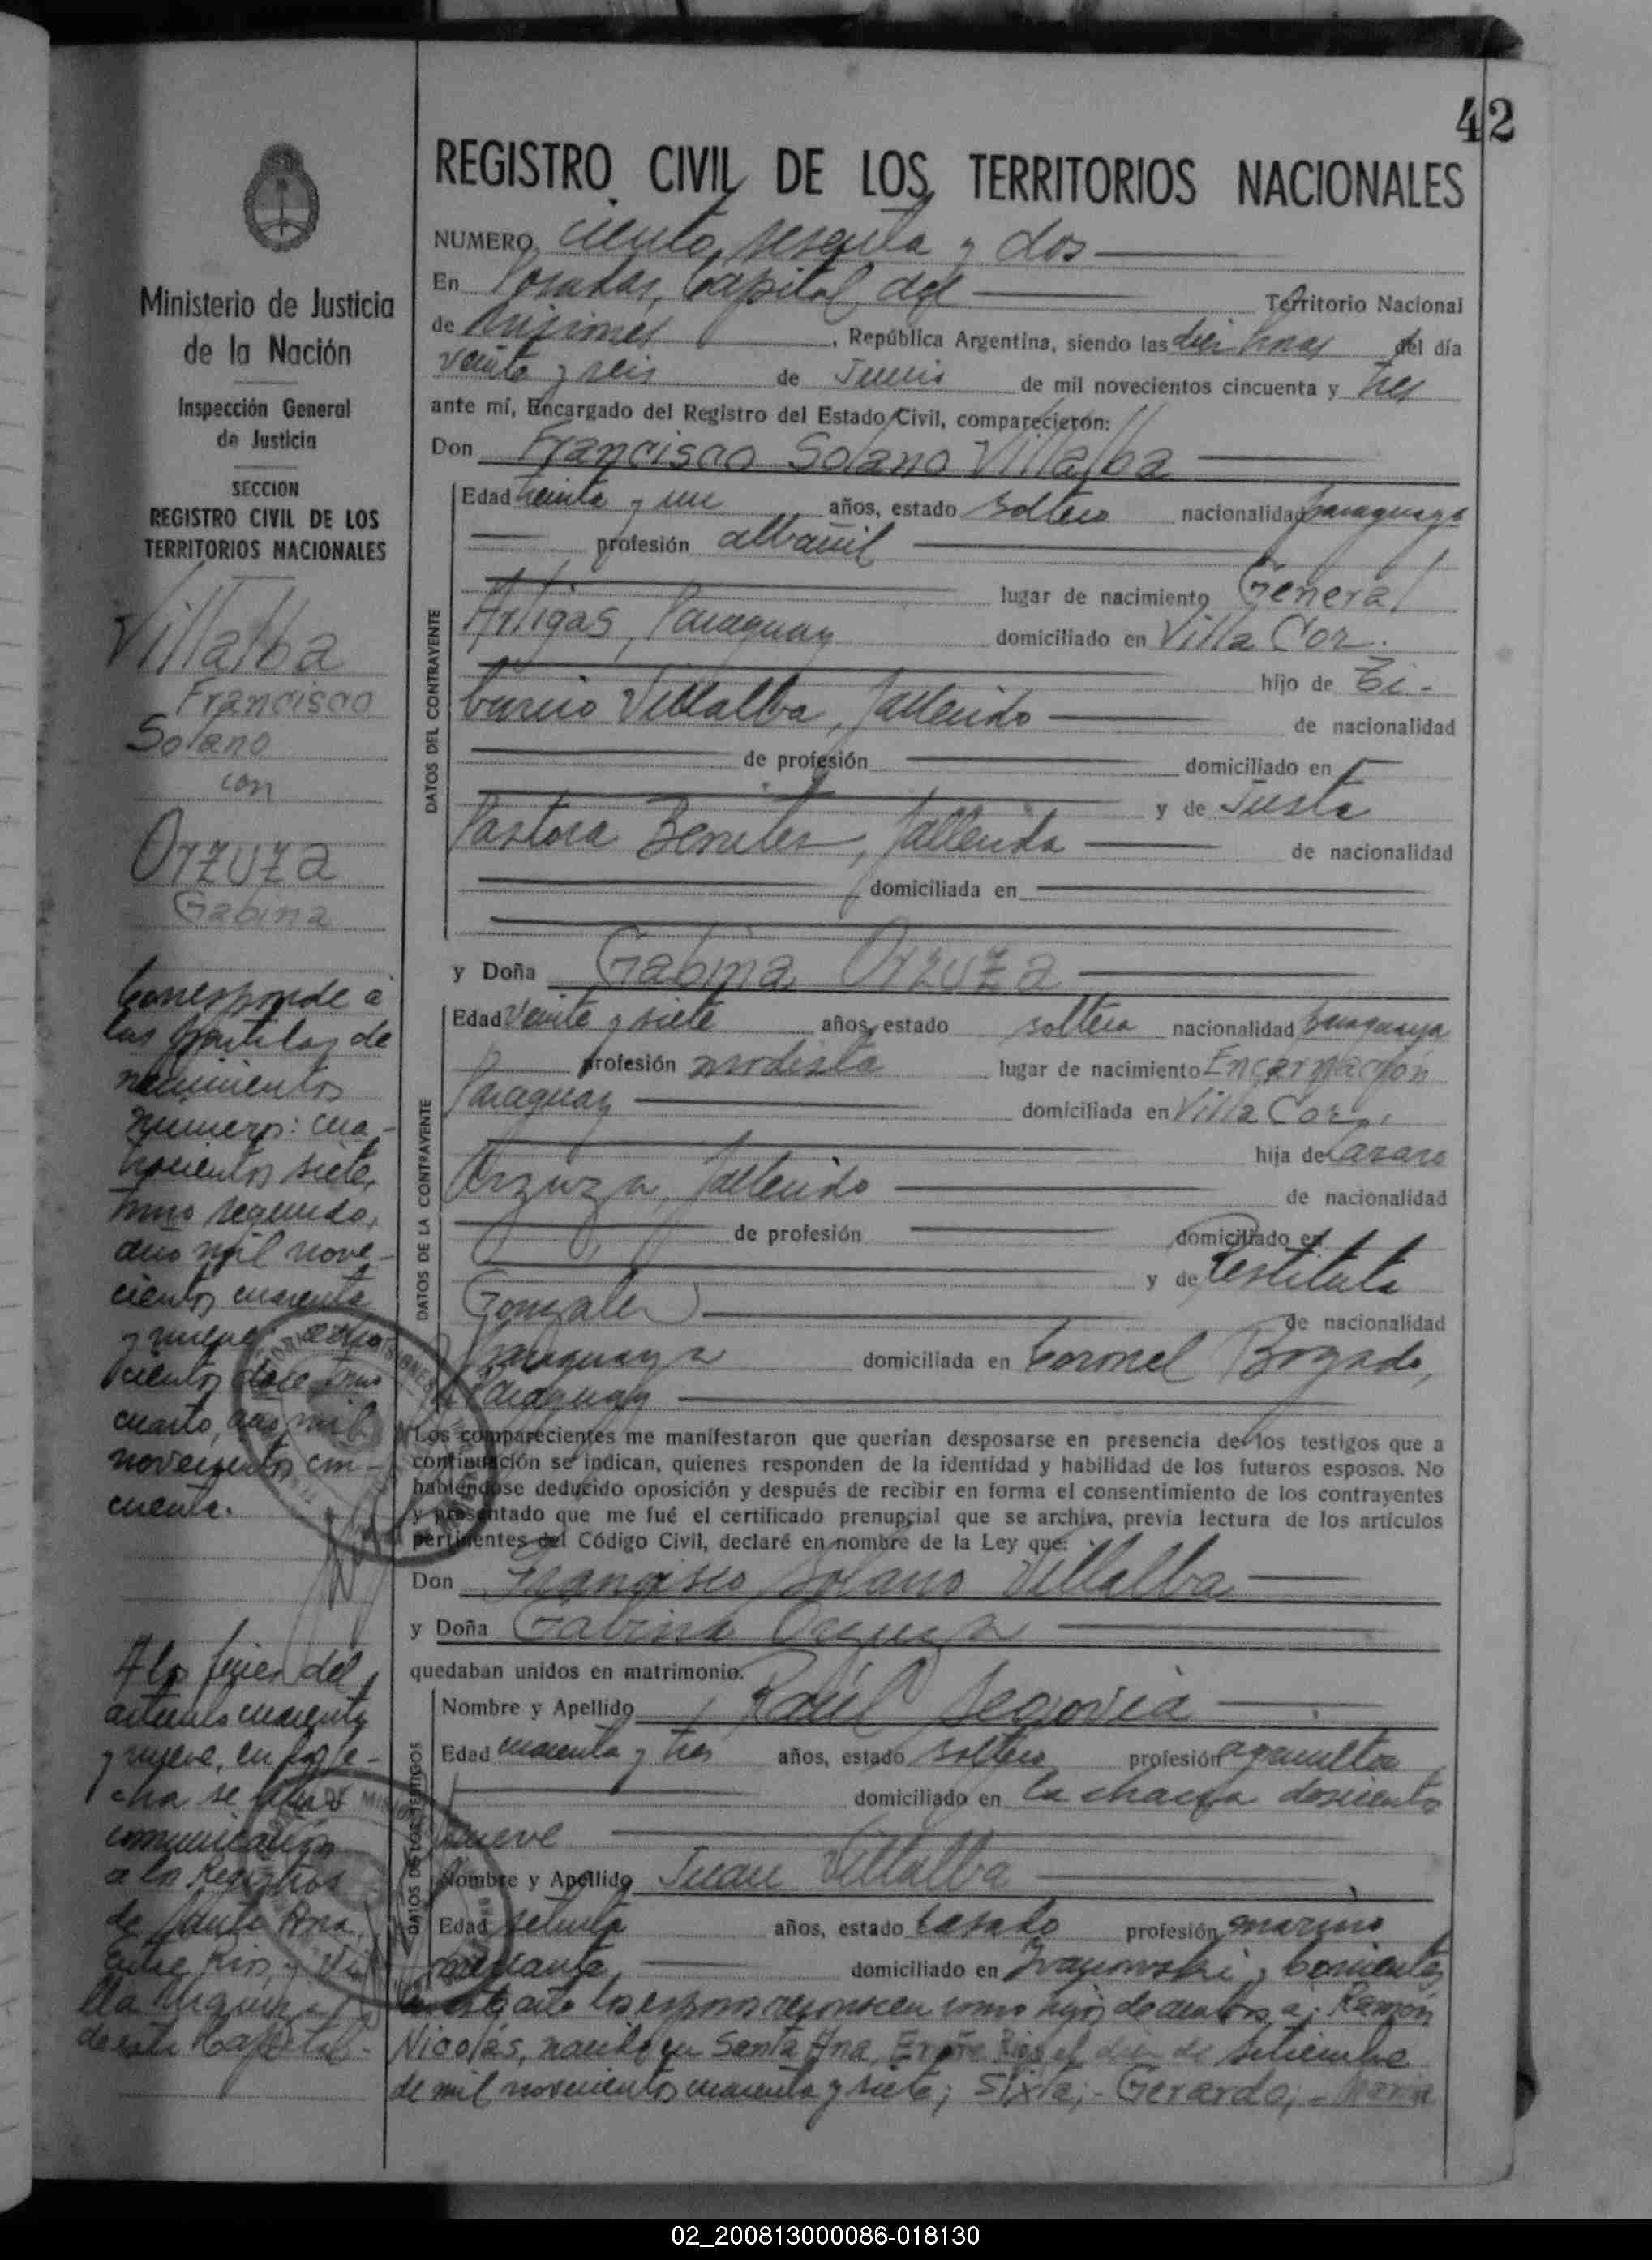 42
REGISTRO CIVIL DE LOS TERRITORIOS NACIONALES
NUMERO ciento sesenta y dos
En Posadas, Capital del Territorio Nacional
de Misiones, República Argentina, siendo las diez horas del día
veinte y seis de Junio de mil novecientos cincuenta y tres
ante mí, Encargado del Registro del Estado Civil, comparecieron:
Don Francisco Solano Villalba
DATOS DEL CONTRAYENTE
Edad treinta y un años, estado soltero nacionalidad paraguaya
profesión albañil
lugar de nacimiento General
Artigas, Paraguay domiciliado en Villa Cor.
hijo de Ti-
burcio Villalba, fallecido de nacionalidad
de profesión domiciliado en
y de Justa
Pastora Benitez, fallecida de nacionalidad
domiciliada en
y Doña Gabina Orzuza
DATOS DE LA CONTRAYENTE
Edad veinte y siete años, estado soltera nacionalidad paraguaya
profesión modista lugar de nacimiento Encarnación
Paraguay domiciliada en Villa Cor.
hija de Lazaro
Orzuza, fallecido de nacionalidad
de profesión domiciliado en
y de Restituta
Gonzalez de nacionalidad
paraguaya domiciliada en Coronel Bogado,
Paraguay
Los comparecientes me manifestaron que querían desposarse en presencia de los testigos que a
continuación se indican, quienes responden de la identidad y habilidad de los futuros esposos. No
habiéndose deducido oposición y después de recibir en forma el consentimiento de los contrayentes
y presentado que me fué el certificado prenupcial que se archiva, previa lectura de los artículos
pertinentes del Código Civil, declaré en nombre de la Ley que:
Don Francisco Solano Villalba
y Doña Gabina Orzuza
quedaban unidos en matrimonio.
DATOS DE LOS TESTIGOS
Nombre y Apellido Raúl Segovia
Edad cuarenta y tres años, estado soltero profesión agricultor
domiciliado en la chacra doscientos
nueve
Nombre y Apellido Juan Villalba
Edad setenta años, estado casado profesión marino
mercante domiciliado en y Corrientes
En este acto los esposos reconocen como hijos de ambos a: Ramón
Nicolás, nacido en Santa Ana, Entre Rios el diez de setiembre
de mil novecientos cuarenta y siete; Sixta; - Gerardo; - Maria
Ministerio de Justicia
de la Nación
Inspección General
de Justicia
SECCION
REGISTRO CIVIL DE LOS
TERRITORIOS NACIONALES
Villalba
Francisco
Solano
con
Orzuza
Gabina
Corresponde a
las partidas de
nacimientos
número: cua-
trocientos siete,
tomo segundo,
año mil nove-
cientos cuarenta
y nueve; ocho
cientos doce tomo
cuarto, año mil
novecientos cin-
cuenta.
A los fines del
artículo cuarenta
y nueve, en la fe-
cha se
comunicación
a los Registros
de Santa Ana,
Entre Rios, y Vi
lla Urquiza
de esta Capital-
02_200813000086-018130